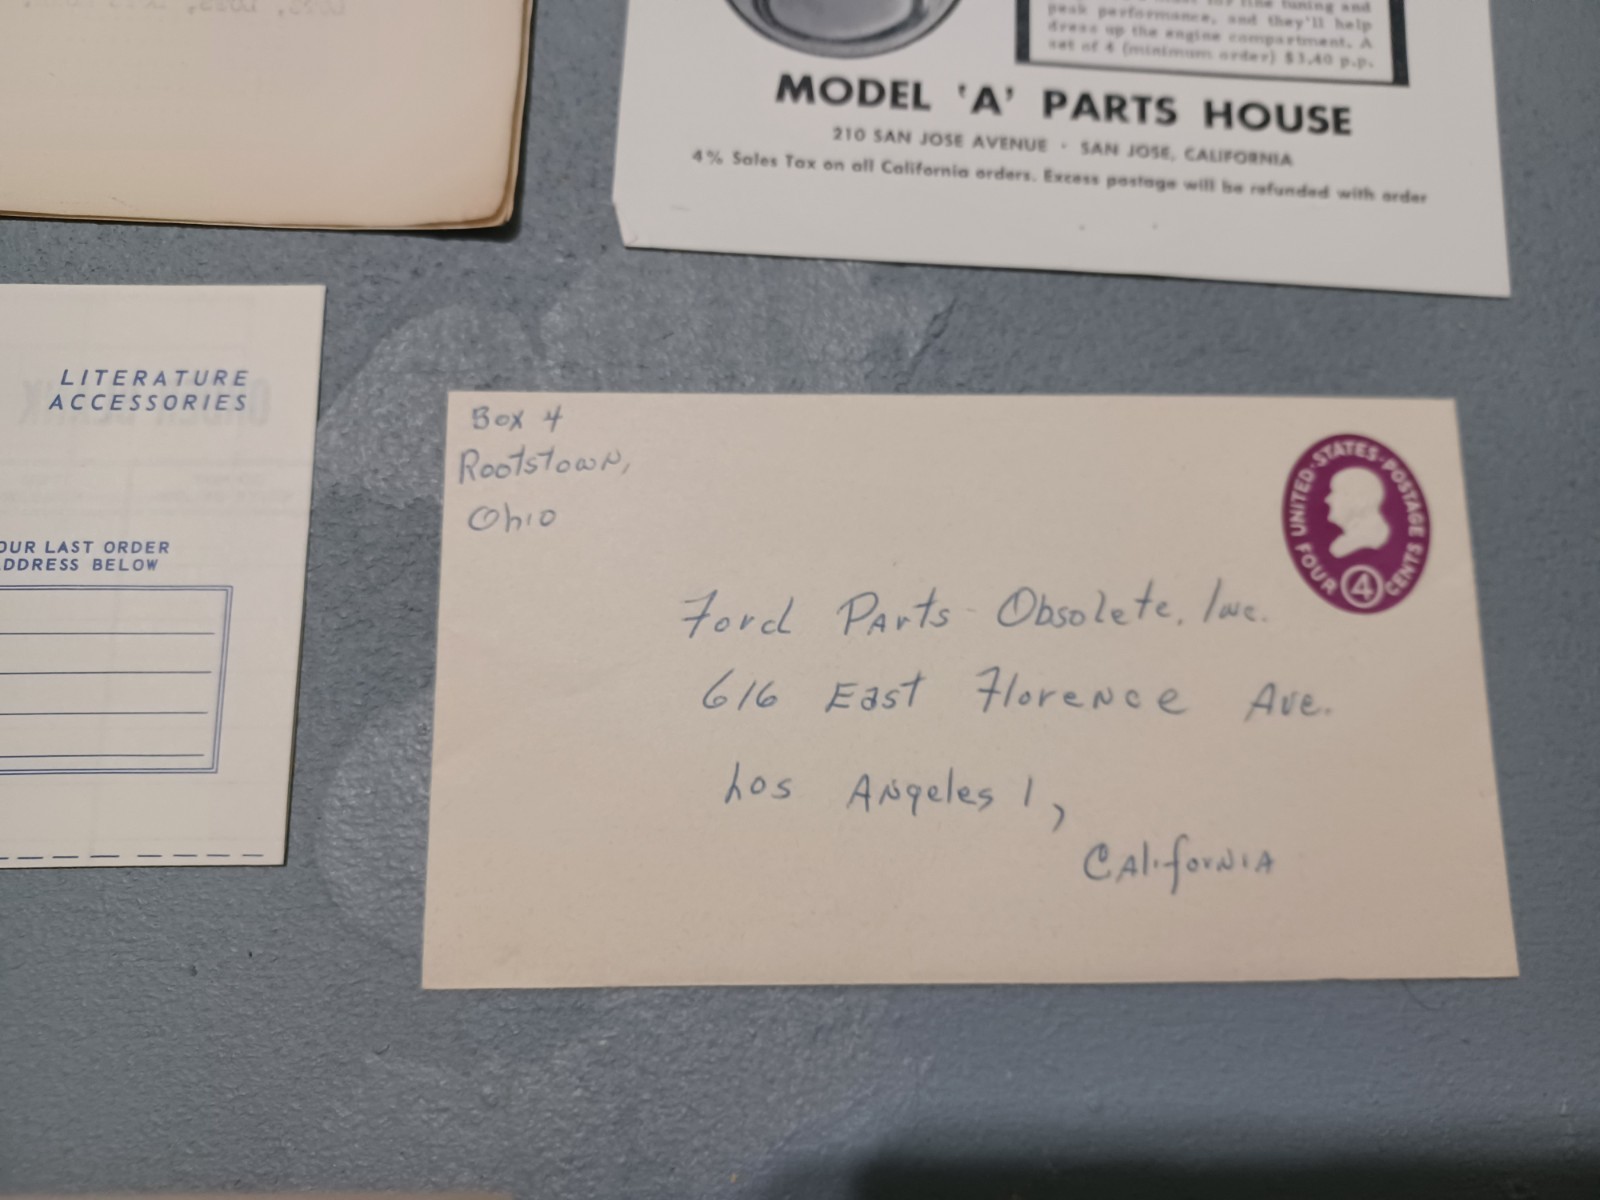 fine tuning and
peak performance, and they'll help
dress up the engine compartment. A
set of 4 (minimum order) $3.40 p.p.
MODEL 'A' PARTS HOUSE
210 SAN JOSE AVENUE · SAN JOSE, CALIFORNIA
4% Sales Tax on all California orders. Excess postage will be refunded with order
LITERATURE
ACCESSORIES
OUR LAST ORDER
DDRESS BELOW
Box 4
Rootstown,
Ohio
UNITED·STATES·POSTAGE
FOUR 4 CENTS
Ford Parts Obsolete, Inc.
616 East Florence Ave.
Los Angeles 1,
California